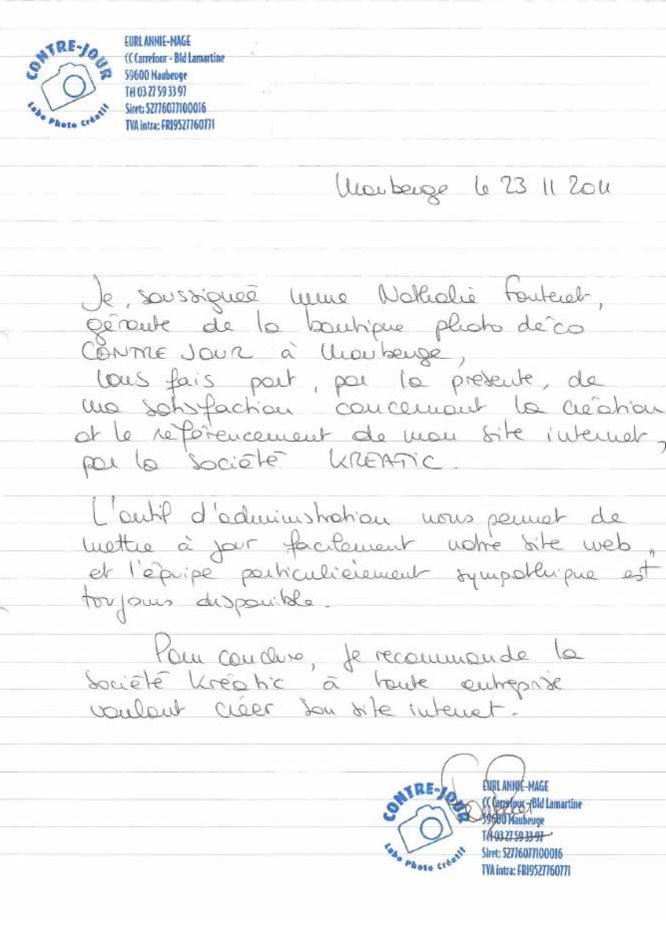 CONTRE-JOUR
Labo Photo Créatif
EURL ANNIE-MAGE
CC Carrefour - Bld Lamartine
59600 Maubeuge
Tél 03 27 59 33 97
Siret: 52776077100016
TVA intra: FR19527760771
Maubeuge le 23 11 2011
Je, soussigneé Mme Nathalie Fonteret,
gérante de la boutique photo déco
CONTRE JOUR à Maubeuge,
vous fais part, par la présente, de
ma satisfaction concernant la création
et le référencement de mon site internet,
par la société KREATIC.
L'outil d'administration nous permet de
mettre à jour facilement notre site web,
et l'équipe particulièrement sympathique est
toujours disponible.
Pour conclure, je recommande la
société Kréatic à toute entreprise
voulant créer son site internet.
CONTRE-JOUR
Labo Photo Créatif
EURL ANNIE-MAGE
CC Carrefour - Bld Lamartine
59600 Maubeuge
Tél 03 27 59 33 97
Siret: 52776077100016
TVA intra: FR19527760771